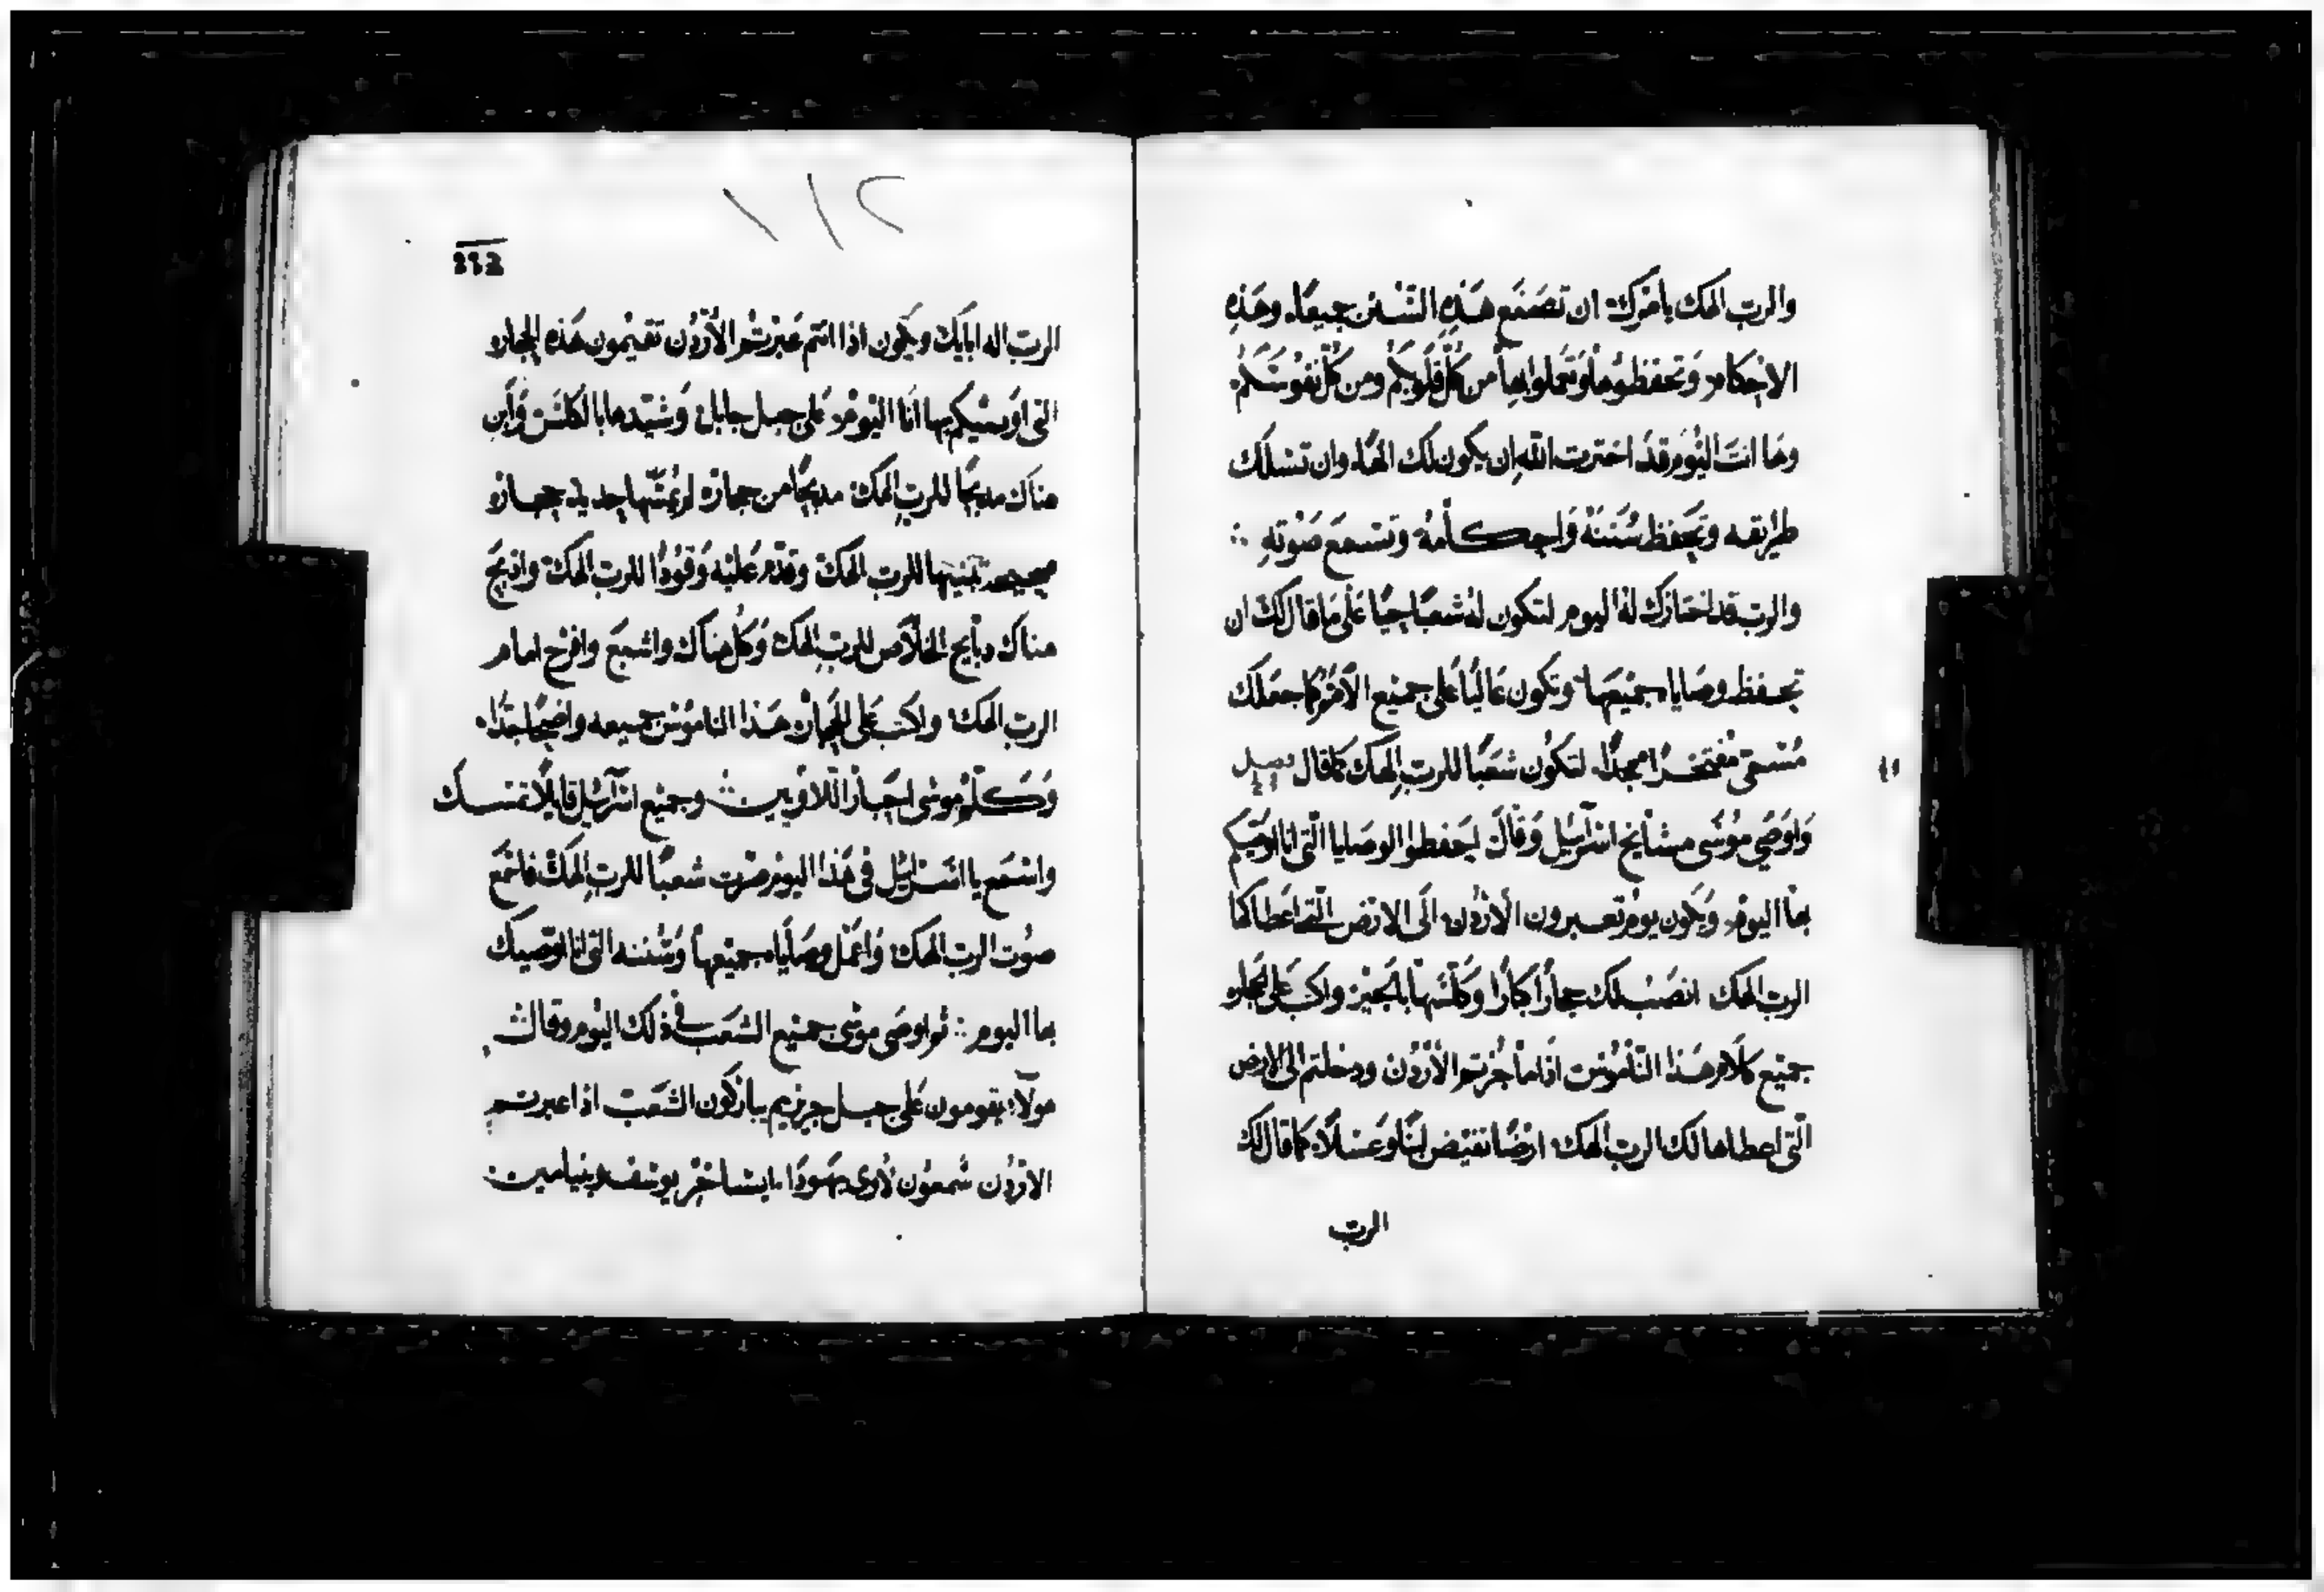 والرب الهك يأمرك ان تصنع هذه السنن جميعًا. وهذه
الاحكام وتحفظوها وتعملوا بها من كل قلوبكم ومن كل نفوسكم
وها انت اليوم قد اخترت الله ان يكون لك الهًا. وان تسلك
طريقه وتحفظ سننه واحكامه وتسمع صوته ∴
والرب قد اختارك له اليوم لتكون له شعبًا حيًا على ما قال لك ان
تحفظ وصاياه جميعها وتكون عاليًا على جميع الامم كما جعلك
مسمى مفتخرًا ممجدًا. لتكون شعبًا للرب الهك كما قال فصل
واوصى موسى مشايخ اسرائيل وقال احفظوا الوصايا التى انا اوصيكم
بها اليوم. ويكون يوم تعبرون الاردن الى الارض التى اعطاكما
الرب الهك انصب لك حجارًا كبارًا وكلسها بالجير واكتب على الحجارو
جميع كلام هذا الناموس اذا ما جزتم الاردن ودخلتم الى الارض
التى اعطاها لك الرب الهك ارضًا تفيض لبنًا وعسلًا. كما قال لك
الرب
٢١١
الرب اله ابايك ويكون اذا انتم عبرتم الاردن تقيمون هذه الحجاره
التى اوصيكم بها انا اليوم على جبل جابل وشيدها بالكلس وابن
هناك مدبحًا للرب الهك مدبحًا من حجاره لم يمسها حديد حجاره
صحيحه تبنيها للرب الهك وقدم عليه وقودًا للرب الهك واذبح
هناك دبايح الخلاص للرب الهك وكل هناك واشبع وافرح امام
الرب الهك واكتب على الحجاره هذا الناموس جميعه واضحًا جدًا.
وكلم موسى احبار اللاويين وجميع اسرائيل قايلًا تمسك
واسمع يا اسرائيل فى هذا اليوم صرت شعبًا للرب الهك فاسمع
صوت الرب الهك واعمل وصاياه جميعها وسننه التى انا اوصيك
بها اليوم ∴ ثم اوصى موسى جميع الشعب فى ذلك اليوم وقال
هولاء يقومون على جبل جريزيم يباركون الشعب اذا عبرتم
الاردن شمعون لاوى يهودا. ايساخر يوسف وبنيامين